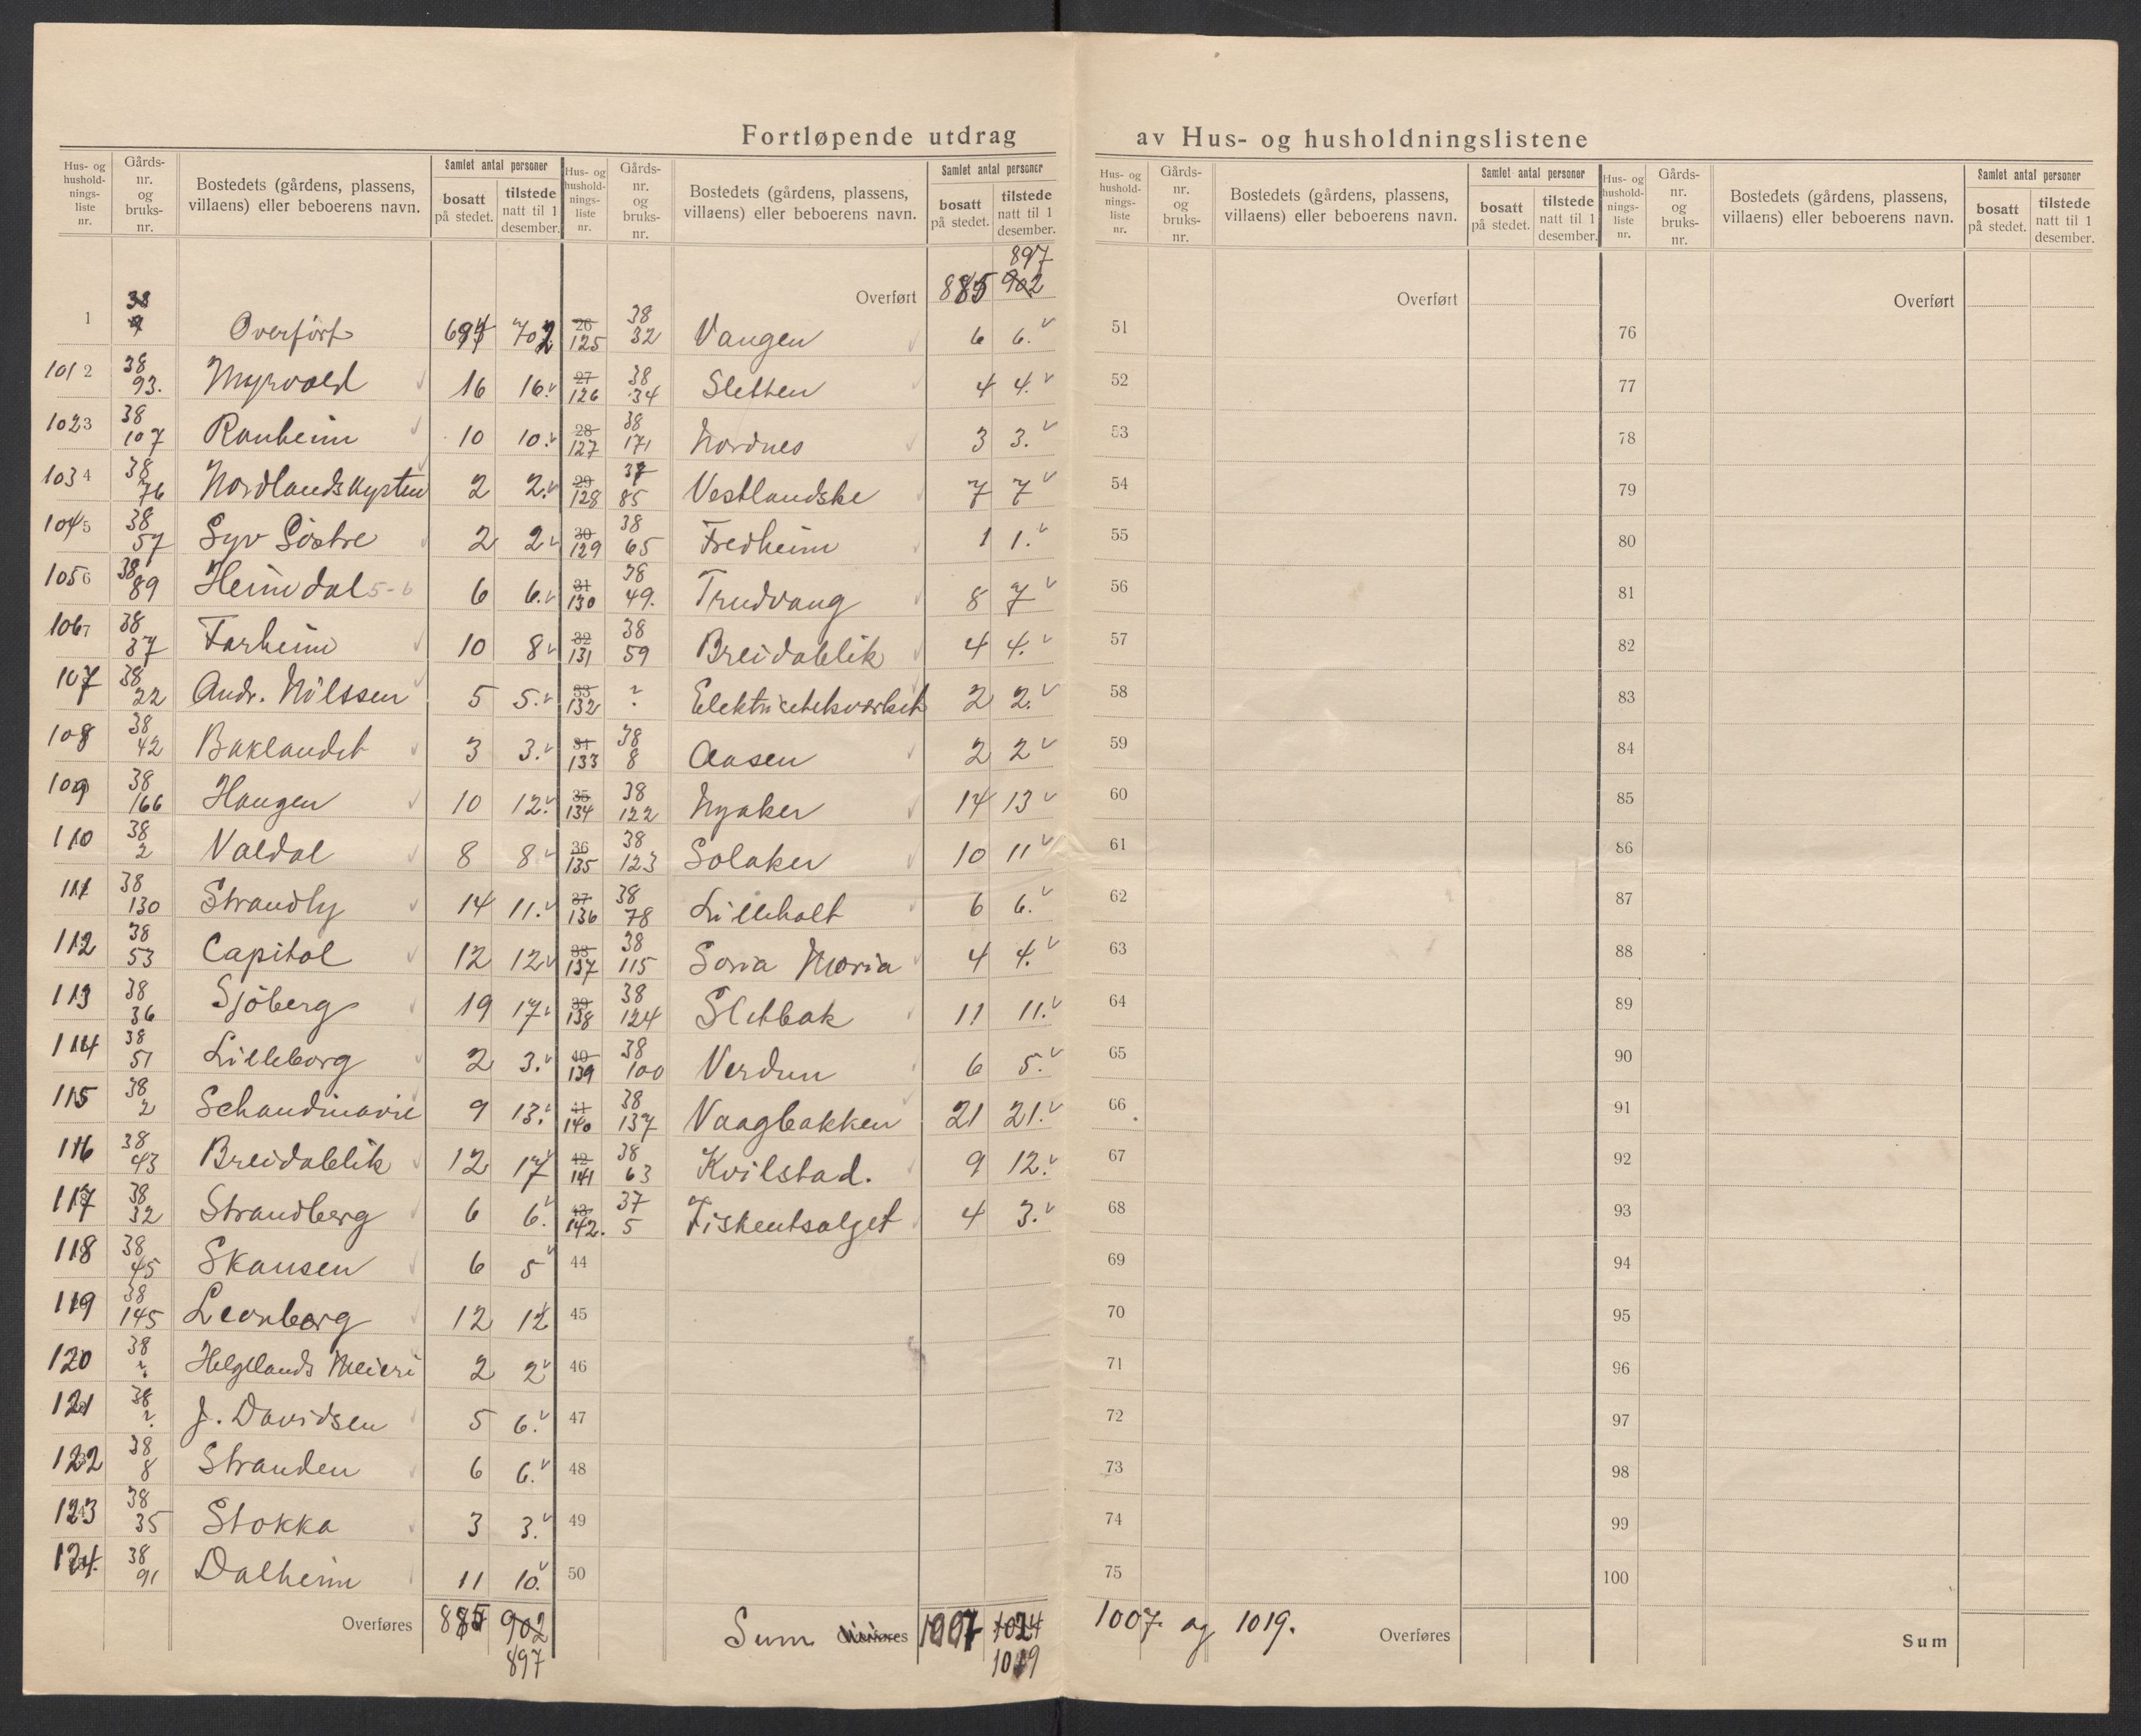 Fortløpende utdrag av Hus- og husholdningslistene
Hus- og husholdnings-liste nr. | Gårds-nr. og bruks-nr. | Bostedets (gårdens, plassens, villaens) eller beboerens navn. | Samlet antal personer bosatt på stedet. | tilstede natt til 1 desember.
1 | 38 | Overført | 694 | 702
101 2 | 38 93. | Myrvold | 16 | 16.
102 3 | 38 107 | Ranheim | 10 | 10.
103 4 | 38 76 | Nordlandskysten | 2 | 2.
104 5 | 38 57 | Syv Søstre | 2 | 2
105 6 | 38 89 | Heimdal 5-6 | 6 | 6.
106 7 | 38 37 | Farheim | 10 | 8
107 | 38 22 | Andr. Nilssen | 5 | 5.
108 | 38 42 | Baklandet | 3 | 3.
109 | 38 166 | Haugen | 10 | 12.
110 | 38 2 | Valdal | 8 | 8
111 | 38 130 | Strandly | 14 | 11.
112 | 38 53 | Capitol | 12 | 12
113 | 38 36 | Sjöberg | 19 | 17.
114 | 38 51 | Lilleborg | 2 | 3.
115 | 38 2 | Schandinavie | 9 | 13.
116 | 38 43 | Breidablik | 12 | 17
117 | 38 32 | Strandberg | 6 | 6.
118 | 38 45 | Skansen | 6 | 5
119 | 38 145 | Leonberg | 12 | 12
120 | 38 ? | Helgelands Meieri | 2 | 2
121 | 38 ? | J. Davidsen | 5 | 6.
122 | 38 8 | Stranden | 6 | 6.
123 | 38 35 | Stokka | 3 | 3.
124. | 38 91 | Dalheim | 11 | 10.
Overføres | 885 | 902
897
Hus- og husholdnings-liste nr. | Gårds-nr. og bruks-nr. | Bostedets (gårdens, plassens, villaens) eller beboerens navn. | Samlet antal personer bosatt på stedet. | tilstede natt til 1 desember.
897
Overført | 885 | 902
26 125 | 38 32 | Vangen | 6 | 6.
27 126 | 38 34 | Sletten | 4 | 4.
28 127 | 38 171 | Nordnes | 3 | 3.
29 128 | 37 85 | Vestlandske | 7 | 7
30 129 | 38 65 | Fredheim | 1 | 1.
31 130 | 38 49. | Trudvang | 8 | 7
32 131 | 38 59 | Breidablik | 4 | 4.
33 132 | ? | Elektricitetsverket | 2 | 2.
34 133 | 38 8 | Aasen | 2 | 2
35 134 | 38 122 | Nyaker | 14 | 13
36 135 | 38 123 | Solaker | 10 | 11
37 136 | 38 78 | Lilleholt | 6 | 6.
38 137 | 38 115 | Soria Moria | 4 | 4.
39 138 | 38 124 | Sletbak | 11 | 11.
40 139 | 38 100 | Verdun | 6 | 5.
41 140 | 38 137 | Vaagbakken | 21 | 21.
42 141 | 38 63 | Kvilstad. | 9 | 12.
43 142. | 37 5 | Fiskeutsalget | 4 | 3.
44
45
46
47
48
49
50
Sum Overføres | 1007 | 1024
1019
Hus- og husholdnings-liste nr. | Gårds-nr. og bruks-nr. | Bostedets (gårdens, plassens, villaens) eller beboerens navn. | Samlet antal personer bosatt på stedet. | tilstede natt til 1 desember.
Overført
51
52
53
54
55
56
57
58
59
60
61
62
63
64
65
66
67
68
69
70
71
72
73
74
75
1007 og 1019.
Overføres
Hus- og husholdnings-liste nr. | Gårds-nr. og bruks-nr. | Bostedets (gårdens, plassens, villaens) eller beboerens navn. | Samlet antal personer bosatt på stedet. | tilstede natt til 1 desember.
Overført
76
77
78
79
80
81
82
83
84
85
86
87
88
89
90
91
92
93
94
95
96
97
98
99
100
Sum